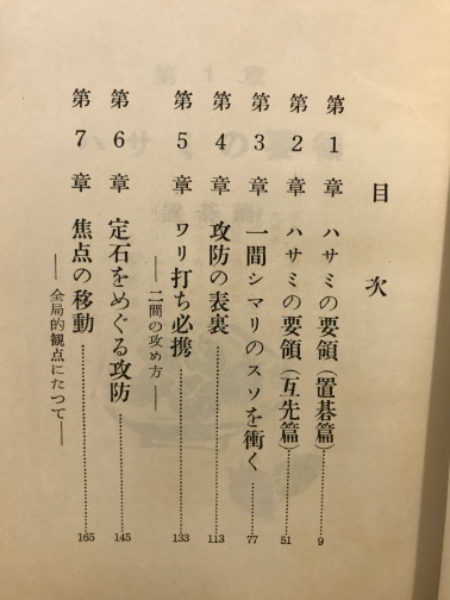 目次
第1章 ハサミの要領(置碁篇)……9
第2章 ハサミの要領(互先篇)……51
第3章 一間シマリのスソを衝く……77
第4章 攻防の表裏……113
第5章 ワリ打ち必携……133
——二間の攻め方——
第6章 定石をめぐる攻防……145
第7章 焦点の移動……165
——全局的観点にたつて——